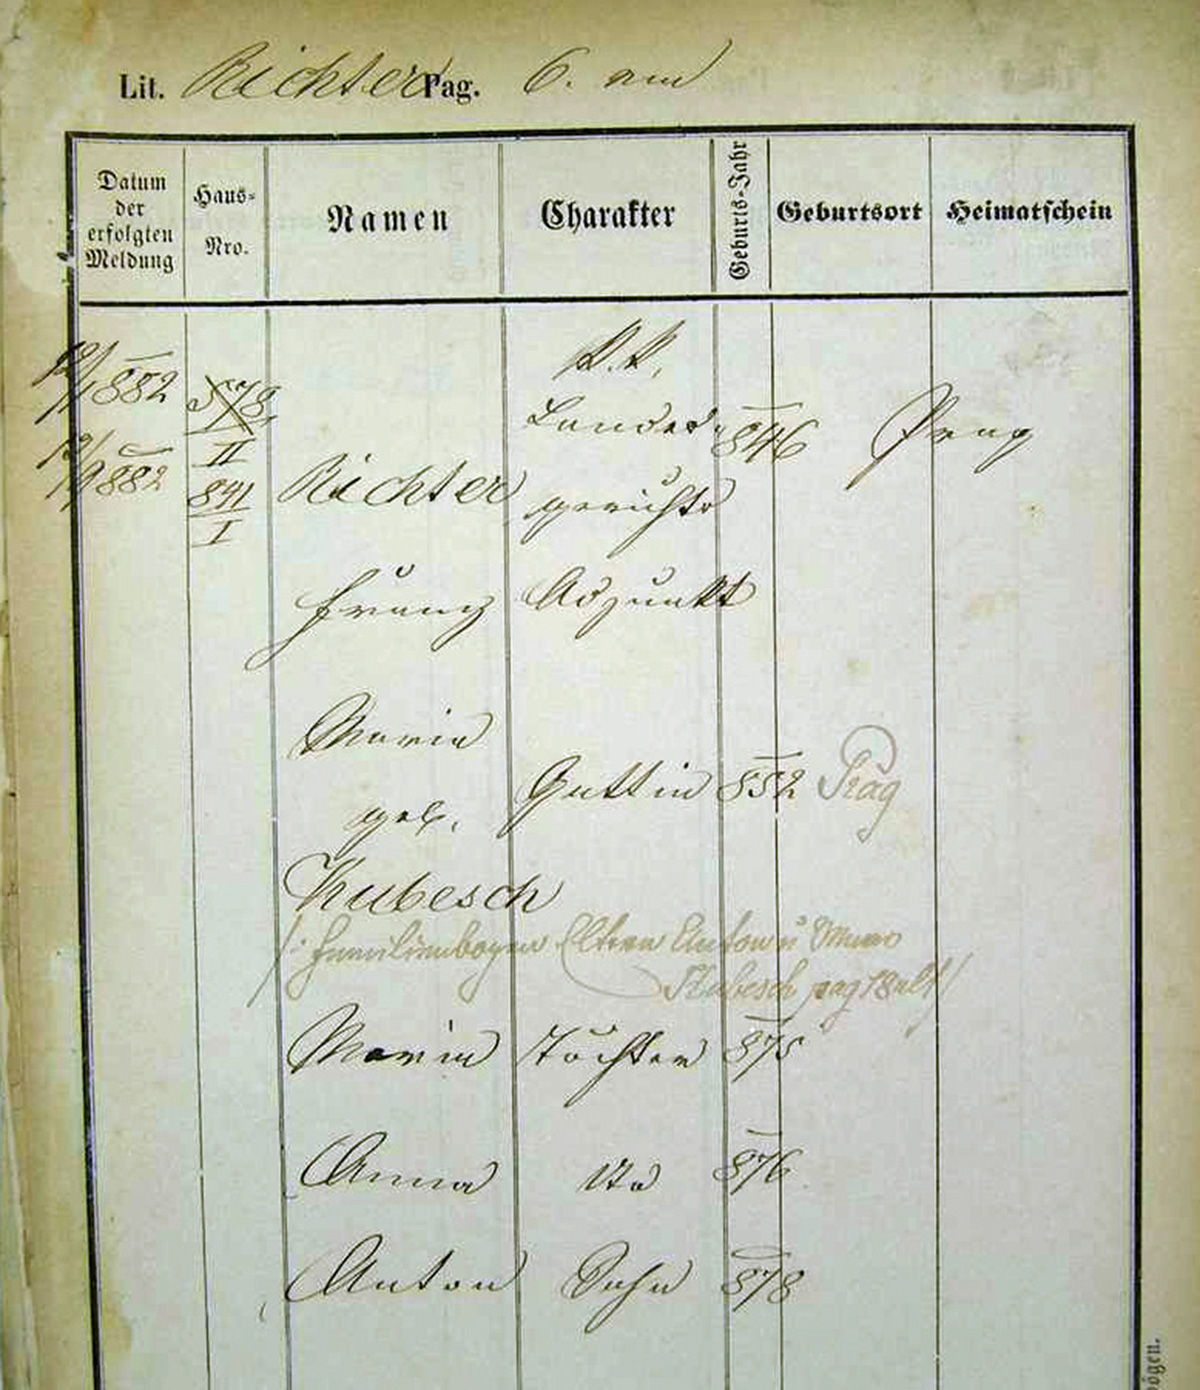 Lit. Richter Pag. 6.
Datum der erfolgten Meldung
Haus-Nro.
Namen
Charakter
Geburts-Jahr
Geburtsort
Heimatschein
12/1 882
578
II
12/9 882
841
I
Richter
Franz
K.K.
Landes-
gerichts
Adjunkt
846
Prag
Maria
geb.
Kubesch
Gattin
852
Prag
/: Familienbogen Eltern Anton u
Kubesch pag 18 alt /
Maria Tochter 875
Anna dto 876
Anton Sohn 878
ögen.